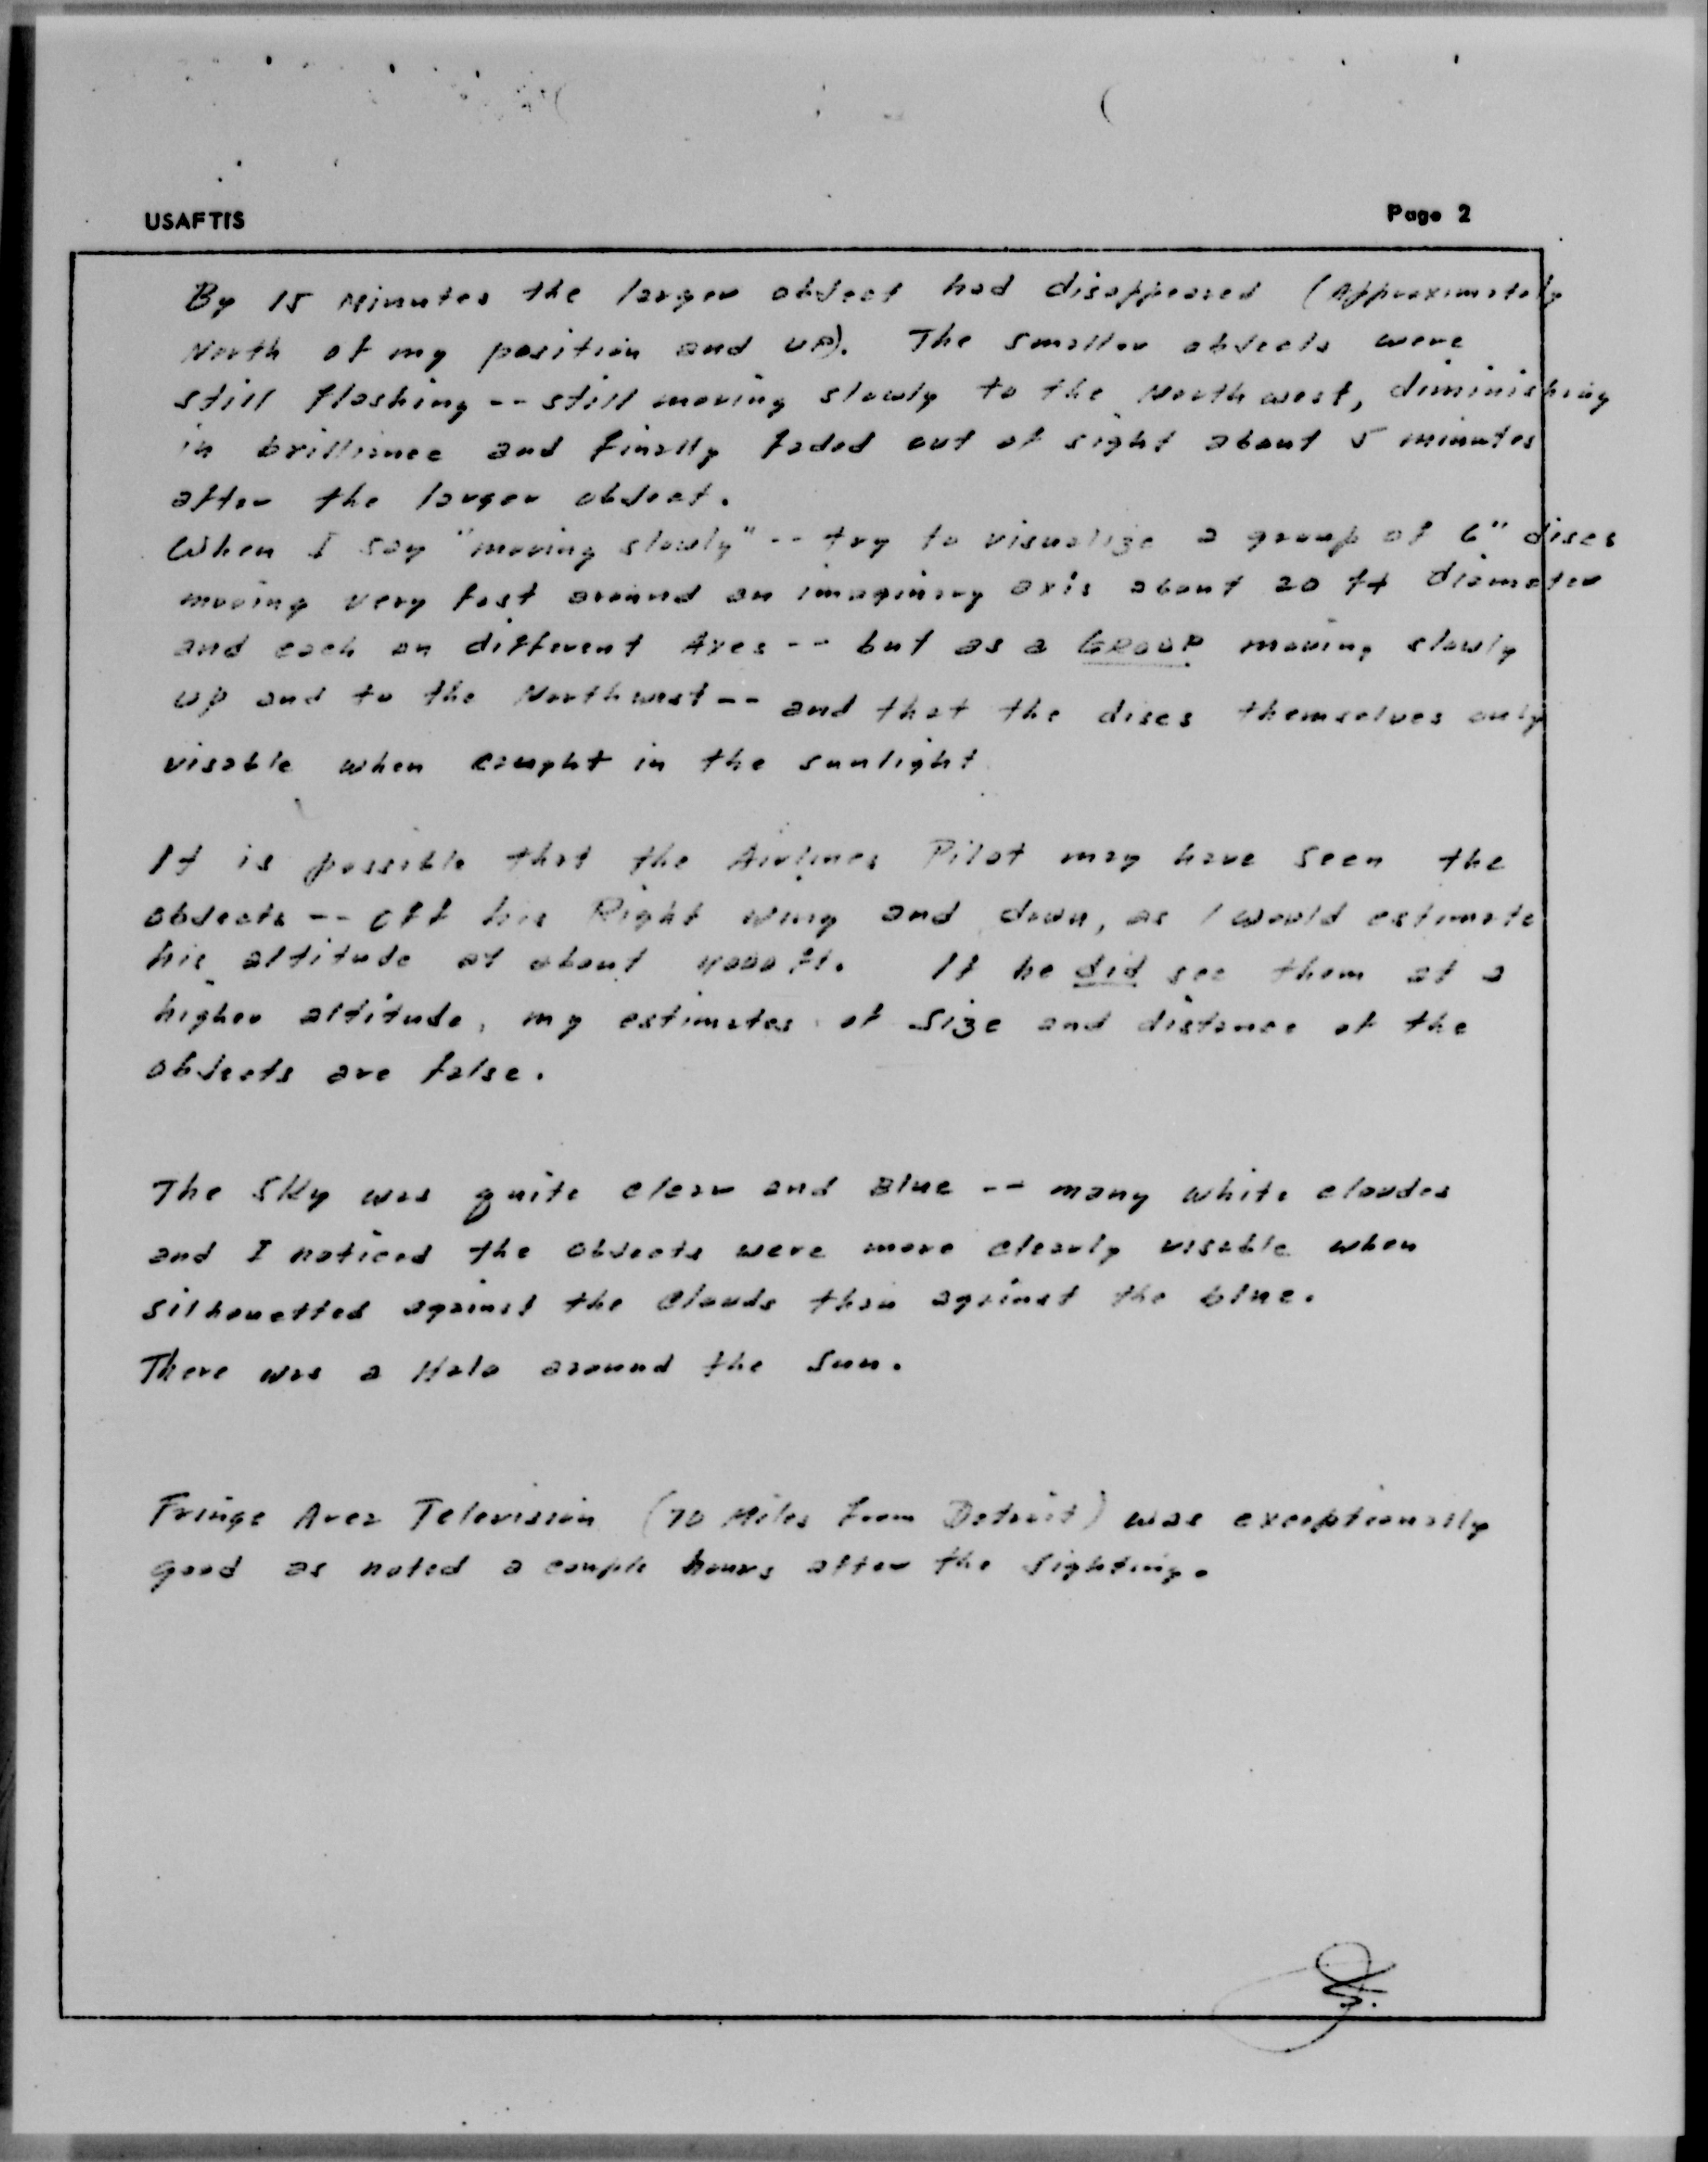 USAFTIS
Page 2
By 15 Minutes the larger object had disappeared (Approximately
North of my position and up). The smaller objects were
still flashing -- still moving slowly to the North west, diminishing
in brilliance and finally faded out of sight about 5 minutes
after the larger object.
When I say "moving slowly" -- try to visualize a group of 6" discs
moving very fast around an imaginary axis about 20 ft diameter
and each on different Axes -- but as a GROUP moving slowly
up and to the Northwest -- and that the discs themselves only
visable when caught in the sunlight
It is possible that the Airlines Pilot may have seen the
objects -- off his Right wing and down, as I would estimate
his altitude at about 4000 ft. If he did see them at a
higher altitude, my estimates of size and distance of the
objects are false.
The Sky was quite clear and Blue -- many white cloudes
and I noticed the objects were more clearly visable when
silhouetted against the clouds than against the blue.
There was a Halo around the Sun.
Fringe Area Television (70 Miles from Detroit) was exceptionally
good as noted a couple hours after the sighting.